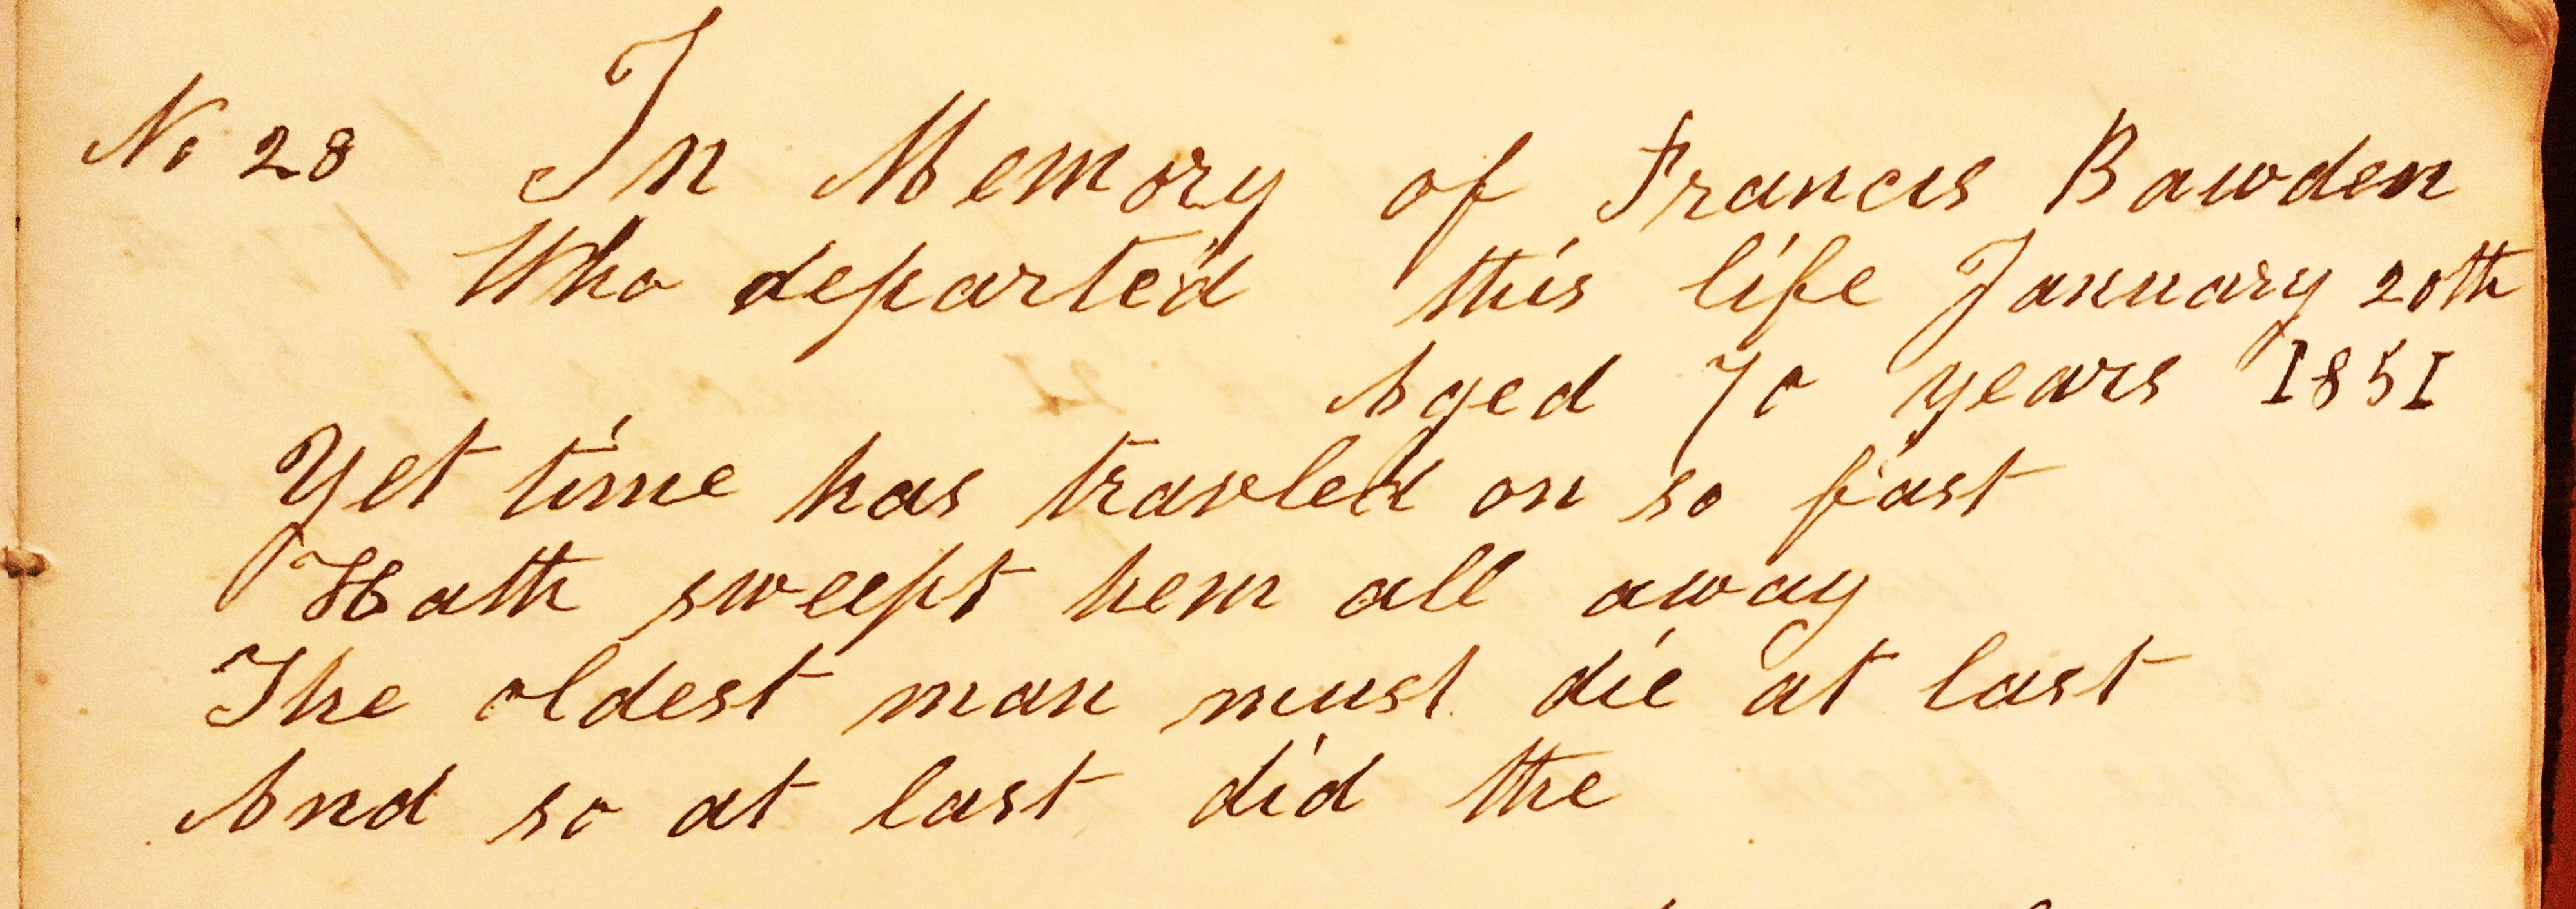 No 28 In Memory of Francis Bawden
Who departed this life January 20th
Aged 70 years 1851
Yet time has traveled on so fast
Hath sweept hem all away
The oldest man must die at last
And so at last did the